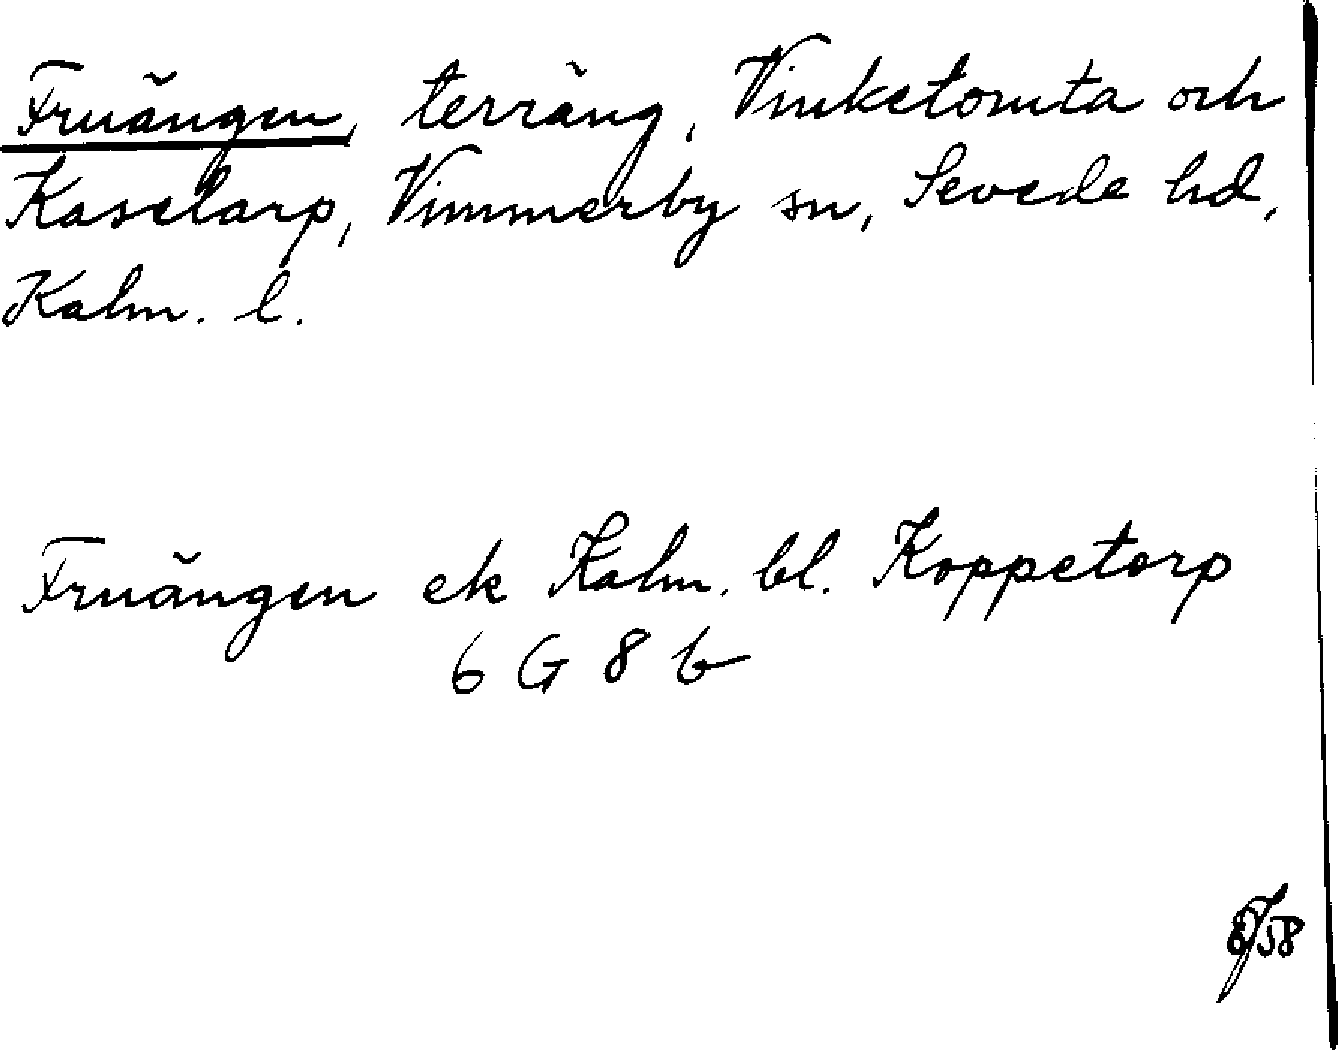 Fruängen, terräng, Vinketomta och
Kaselarp, Vimmerby sn, Sevede hd,
Kalm. l.
Fruängen ek Kalm. bl. Koppetorp
6 G 8 b
58